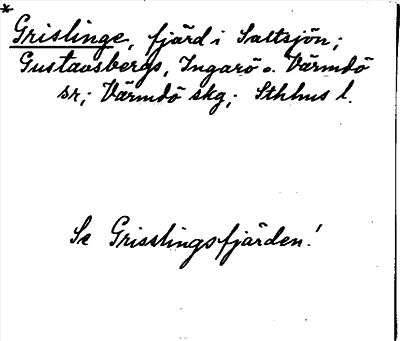 * Grislinge, fjärd i Saltsjön;
Gustavsbergs, Ingarö o. Värmdö
sr; Värmdö skg; Sthlms l.
Se Grisslingsfjärden!